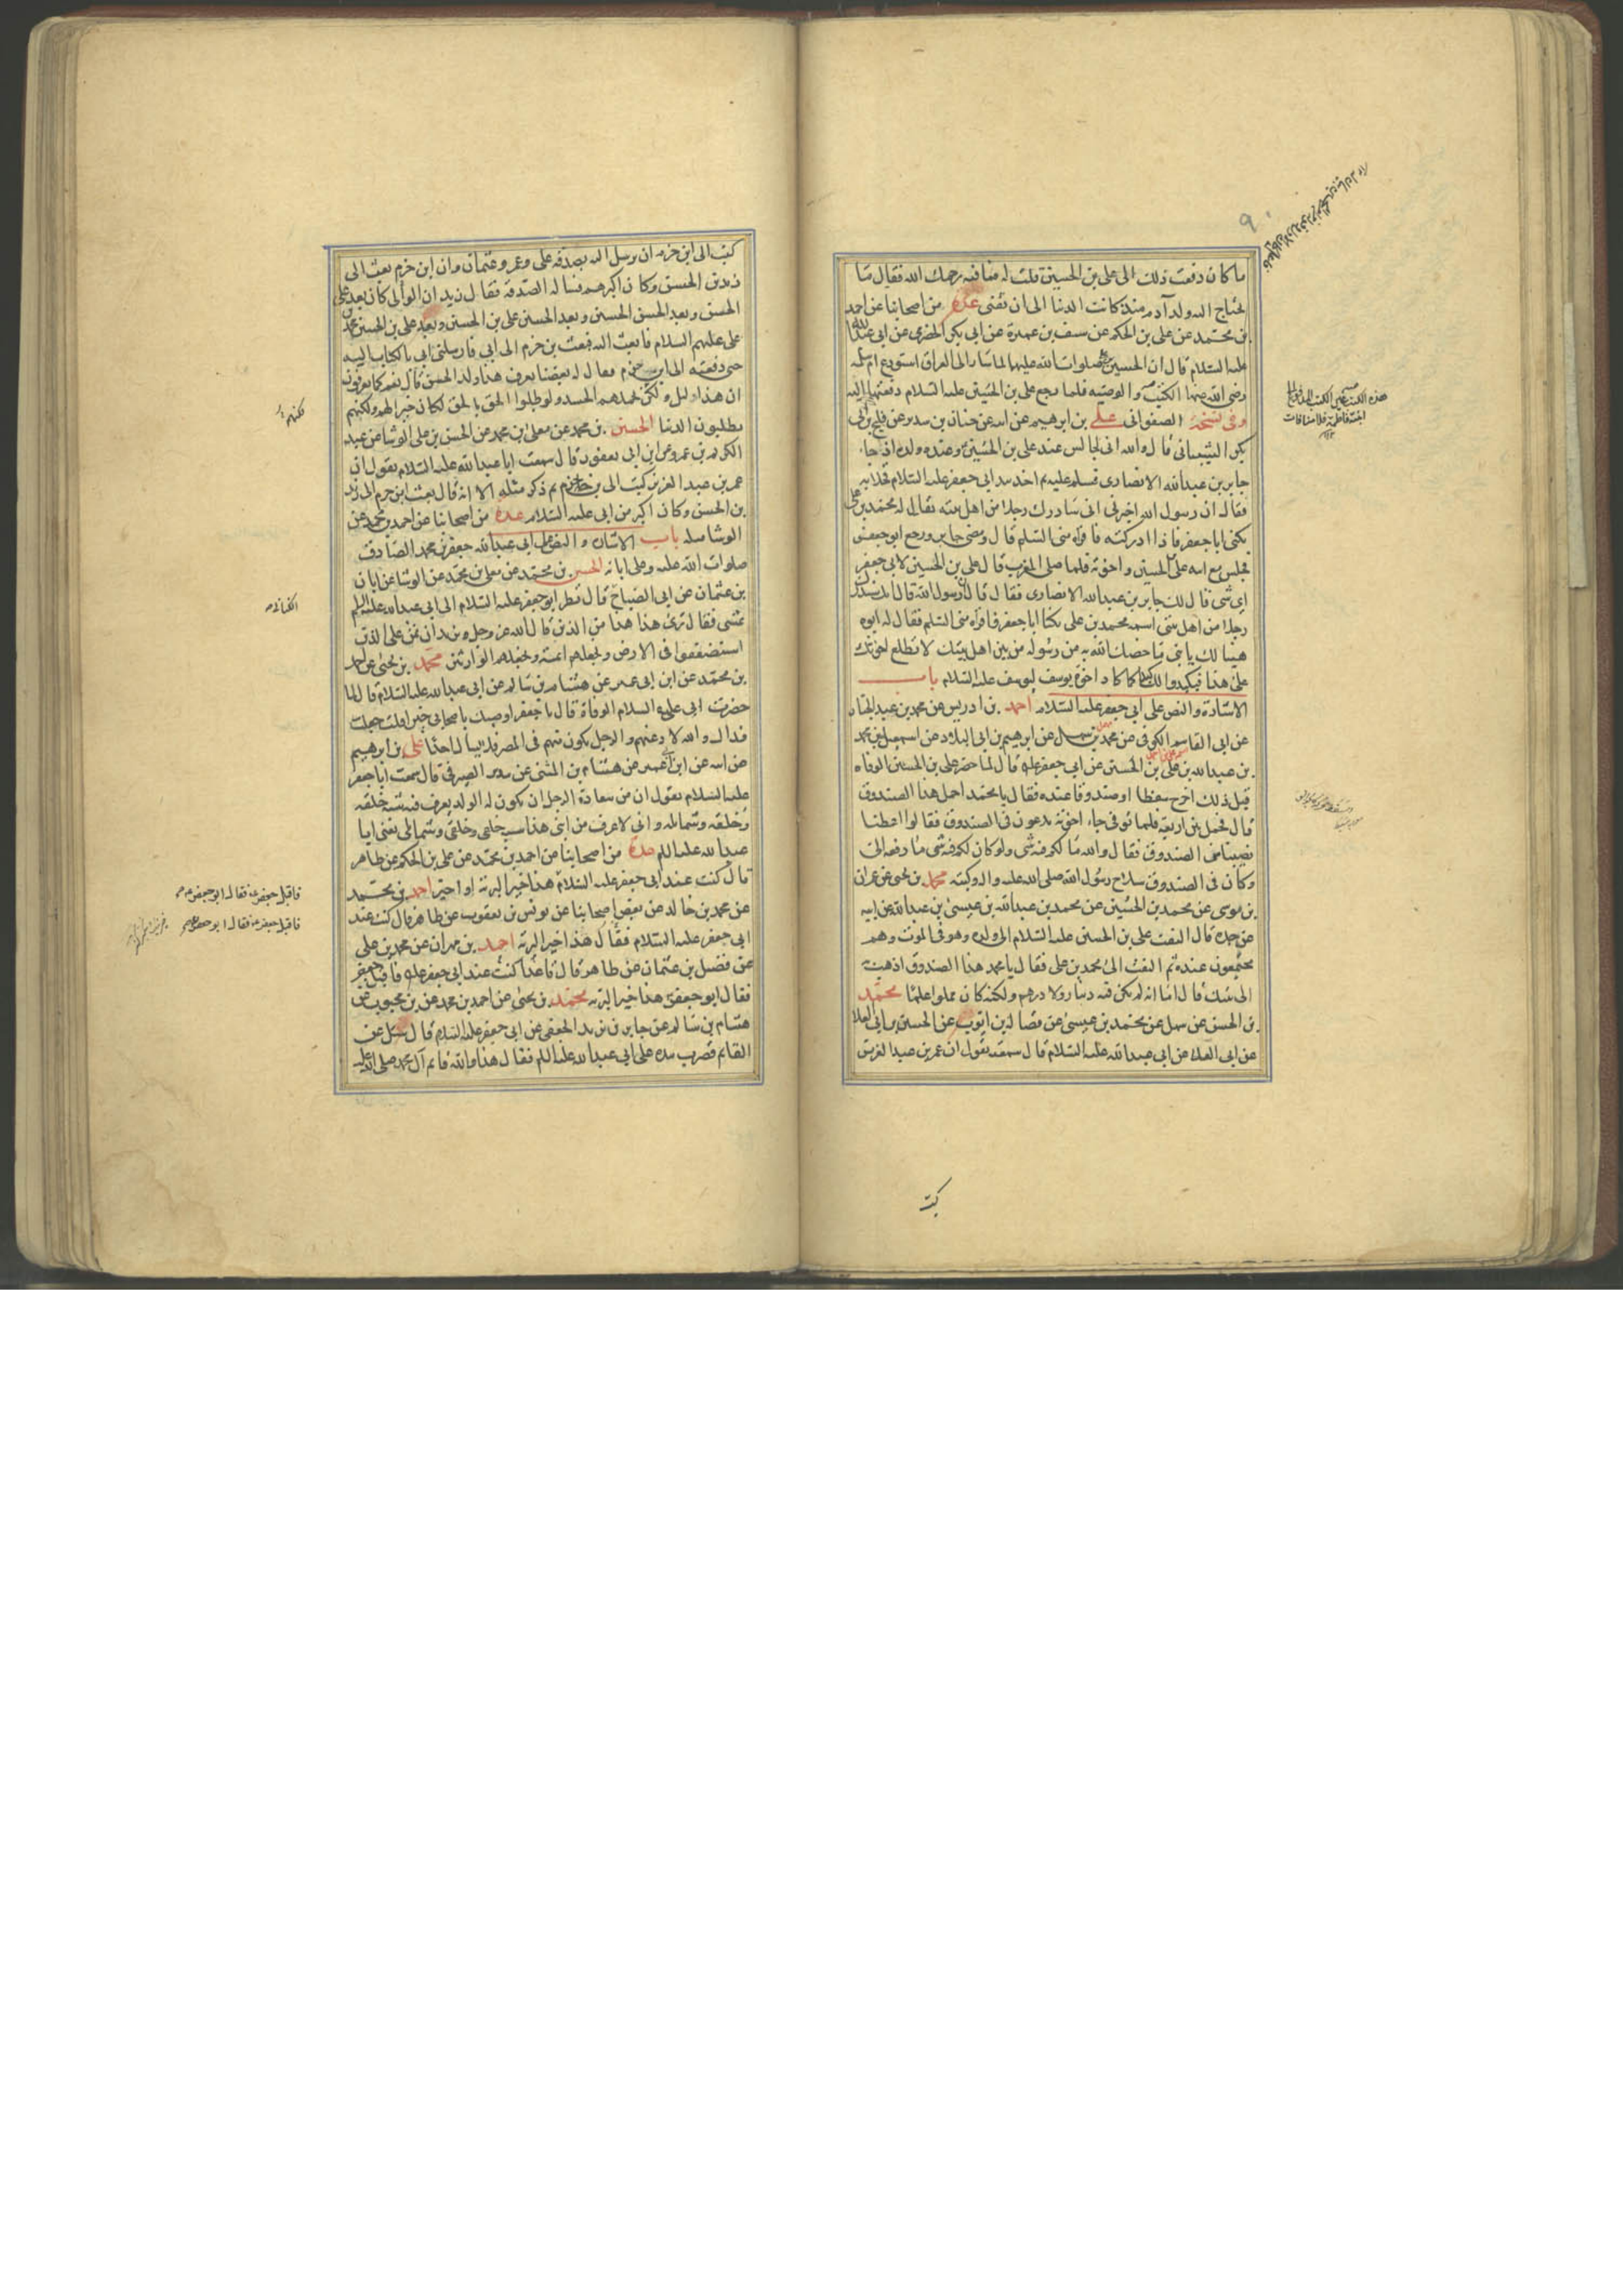 ما كان دفعت ذلك الى على بن الحسين قلت له فما فيه يرحمك الله فقال ما
يحتاج اليه ولد آدم منذ كانت الدنيا الى ان تفنى عدة من اصحابنا عن احمد
بن محمد عن على بن الحكم عن سيف بن عميرة عن ابى بكر الحضرمى عن ابى عبدالله
عليه السلام قال ان الحسين صلوات الله عليهما لما سار الى العراق استودع ام سلمه
رضى الله عنها الكتب والوصية فلما رجع على بن الحسين عليه السلام دفعتها اليه
وفى نسخة الصفوانى على بن ابرهيم عن ابيه عن حنان بن سدير عن فليح بن ابى
بكر الشيبانى قال والله انى لجالس عند على بن الحسين وعنده ولده اذ جاء
جابر بن عبدالله الانصارى فسلم عليه ثم اخذ بيد ابى جعفر عليه السلام فخلا به
فقال ان رسول الله اخبرنى انى سادرك رجلا من اهل بيته يقال له محمد بن على
يكنى ابا جعفر فاذا ادركته فاقراه منى السلم قال ومضى جابر ورجع ابو جعفر
فجلس مع ابيه على بن الحسين واخوته فلما صلى المغرب قال على بن الحسين لابى جعفر
اى شى قال لك جابر بن عبدالله الانصارى فقال قال ان رسول الله قال انك ستدرك
رجلا من اهل بيتى اسمه محمد بن على يكنا ابا جعفر فاقراه منى السلم فقال له ابوه
هنيئا لك يا بنى ما خصك الله به من رسوله من بين اهل بيتك لا تطلع اخوتك
على هذا فيكيدوا لك كيدا كما كاد اخوة يوسف ليوسف عليه السلام باب
الاشارة والنص على ابى جعفر عليه السلام احمد بن ادريس عن محمد بن عبد الجبار
عن ابى القاسم الكوفى عن محمد بن سهل عن ابرهيم بن ابى البلاد عن اسمعيل بن محمد
بن عبدالله بن على بن الحسين عن ابى جعفر عليه قال لما حضر على بن الحسين الوفاة
قبل ذلك اخرج سفطا او صندوقا عنده فقال يا محمد احمل هذا الصندوق
قال فحمل بين اربعة فلما توفى جاء اخوته يدعون فى الصندوق فقالوا اعطنا
نصيبنا من الصندوق فقال والله ما لكم فيه شى ولو كان لكم فيه شى ما دفعه الى
وكان فى الصندوق سلاح رسول الله صلى الله عليه واله وكتبه محمد بن يحيى عن عمران
بن موسى عن محمد بن الحسين عن محمد بن عبدالله بن عيسى بن عبدالله عن ابيه
عن جده قال التفت على بن الحسين عليه السلام الى ولده وهو فى الموت وهم
مجتمعون عنده ثم التفت الى محمد بن على فقال يا محمد هذا الصندوق اذهب به
الى بيتك قال اما انه لم يكن فيه دينار ولا درهم ولكنه كان مملوا علما محمد
بن الحسن عن سهل عن محمد بن عيسى عن فضالة بن ايوب عن الحسين بن ابى العلا
عن ابى العلا عن ابى عبدالله عليه السلام قال سمعته يقول ان عمر بن عبد العزيز
كتب
كتب الى ابن حزم ان يرسل اليه بصدقة على وعمر وعثمان وان ابن حزم بعث الى
زيد بن الحسن وكان اكبرهم فساله الصدقة فقال زيد ان الوالى كان بعد على
الحسن وبعد الحسن الحسين وبعد الحسين على بن الحسين وبعد على بن الحسين محمد بن
على عليهم السلام فابعث اليه فبعث بن حزم الى ابى فارسلنى ابى بالكتاب اليه
حتى دفعته الى ابن حزم فقال له بعضنا يعرف هذا ولد الحسن قال نعم كما يعرفون
ان هذا ليل ولكن يحملهم الحسد ولو طلبوا الحق بالحق لكان خيرا لهم ولكنهم
يطلبون الدنيا الحسين بن محمد عن معلى بن محمد عن الحسن بن على الوشا عن عبد
الكريم بن عمرو عن ابن ابى يعفور قال سمعت ابا عبدالله عليه السلام يقول ان
عمر بن عبد العزيز كتب الى بن حزم ثم ذكر مثله الا انه قال بعث ابن حزم الى زيد
بن الحسن وكان اكبر من ابى عليه السلام عدة من اصحابنا عن احمد بن محمد عن
الوشا مثله باب الاشارة والنص على ابى عبدالله جعفر بن محمد الصادق
صلوات الله عليه وعلى ابائه الحسين بن محمد عن معلى بن محمد عن الوشا عن ابان
بن عثمان عن ابى الصباح قال نظر ابو جعفر عليه السلام الى ابى عبدالله عليه السلم
يمشى فقال ترى هذا هذا من الذين قال الله عز وجل ونريد ان نمن على الذين
استضعفوا فى الارض ونجعلهم ائمة ونجعلهم الوارثين محمد بن يحيى عن احمد
بن محمد عن ابن ابى عمير عن هشام بن سالم عن ابى عبدالله عليه السلام قال لما
حضرت ابى عليه السلام الوفاة قال يا جعفر اوصيك باصحابى خيرا قلت جعلت
فداك والله لادعنهم والرجل يكون منهم فى المصر فلا يسال احدا على بن ابرهيم
عن ابيه عن ابن ابى عمير عن هشام بن المثنى عن سدير الصيرفى قال سمعت ابا جعفر
عليه السلام يقول ان من سعادة الرجل ان يكون له الولد يعرف فيه شبه خلقه
وخلقه وشمائله وانى لاعرف من ابنى هذا شبه خلقى وخلقى وشمائلى يعنى ابا
عبدالله عليه السلم عدة من اصحابنا عن احمد بن محمد عن على بن الحكم عن طاهر
قال كنت عند ابى جعفر عليه السلام هذا خير البرية او اخير احمد بن محمد
عن محمد بن خالد عن بعض اصحابنا عن يونس بن يعقوب عن طاهر قال كنت عند
ابى جعفر عليه السلام فقال هذا خير البرية احمد بن مهران عن محمد بن على
عن فضيل بن عثمان عن طاهر قال قاعدا كنت عند ابى جعفر عليه فاقبل جعفر
فقال ابو جعفر هذا خير البرية محمد بن يحيى عن احمد بن محمد عن بن محبوب عن
هشام بن سالم عن جابر بن يزيد الجعفى عن ابى جعفر عليه السلام قال سئل عن
القايم فضرب بيده على ابى عبدالله عليه السلم فقال هذا والله قائم آل محمد صلى الله عليه
لكنهم
الكنانى
فاقبل جعفر فقال ابو جعفر
فاقبل جعفر فقال ابو جعفر